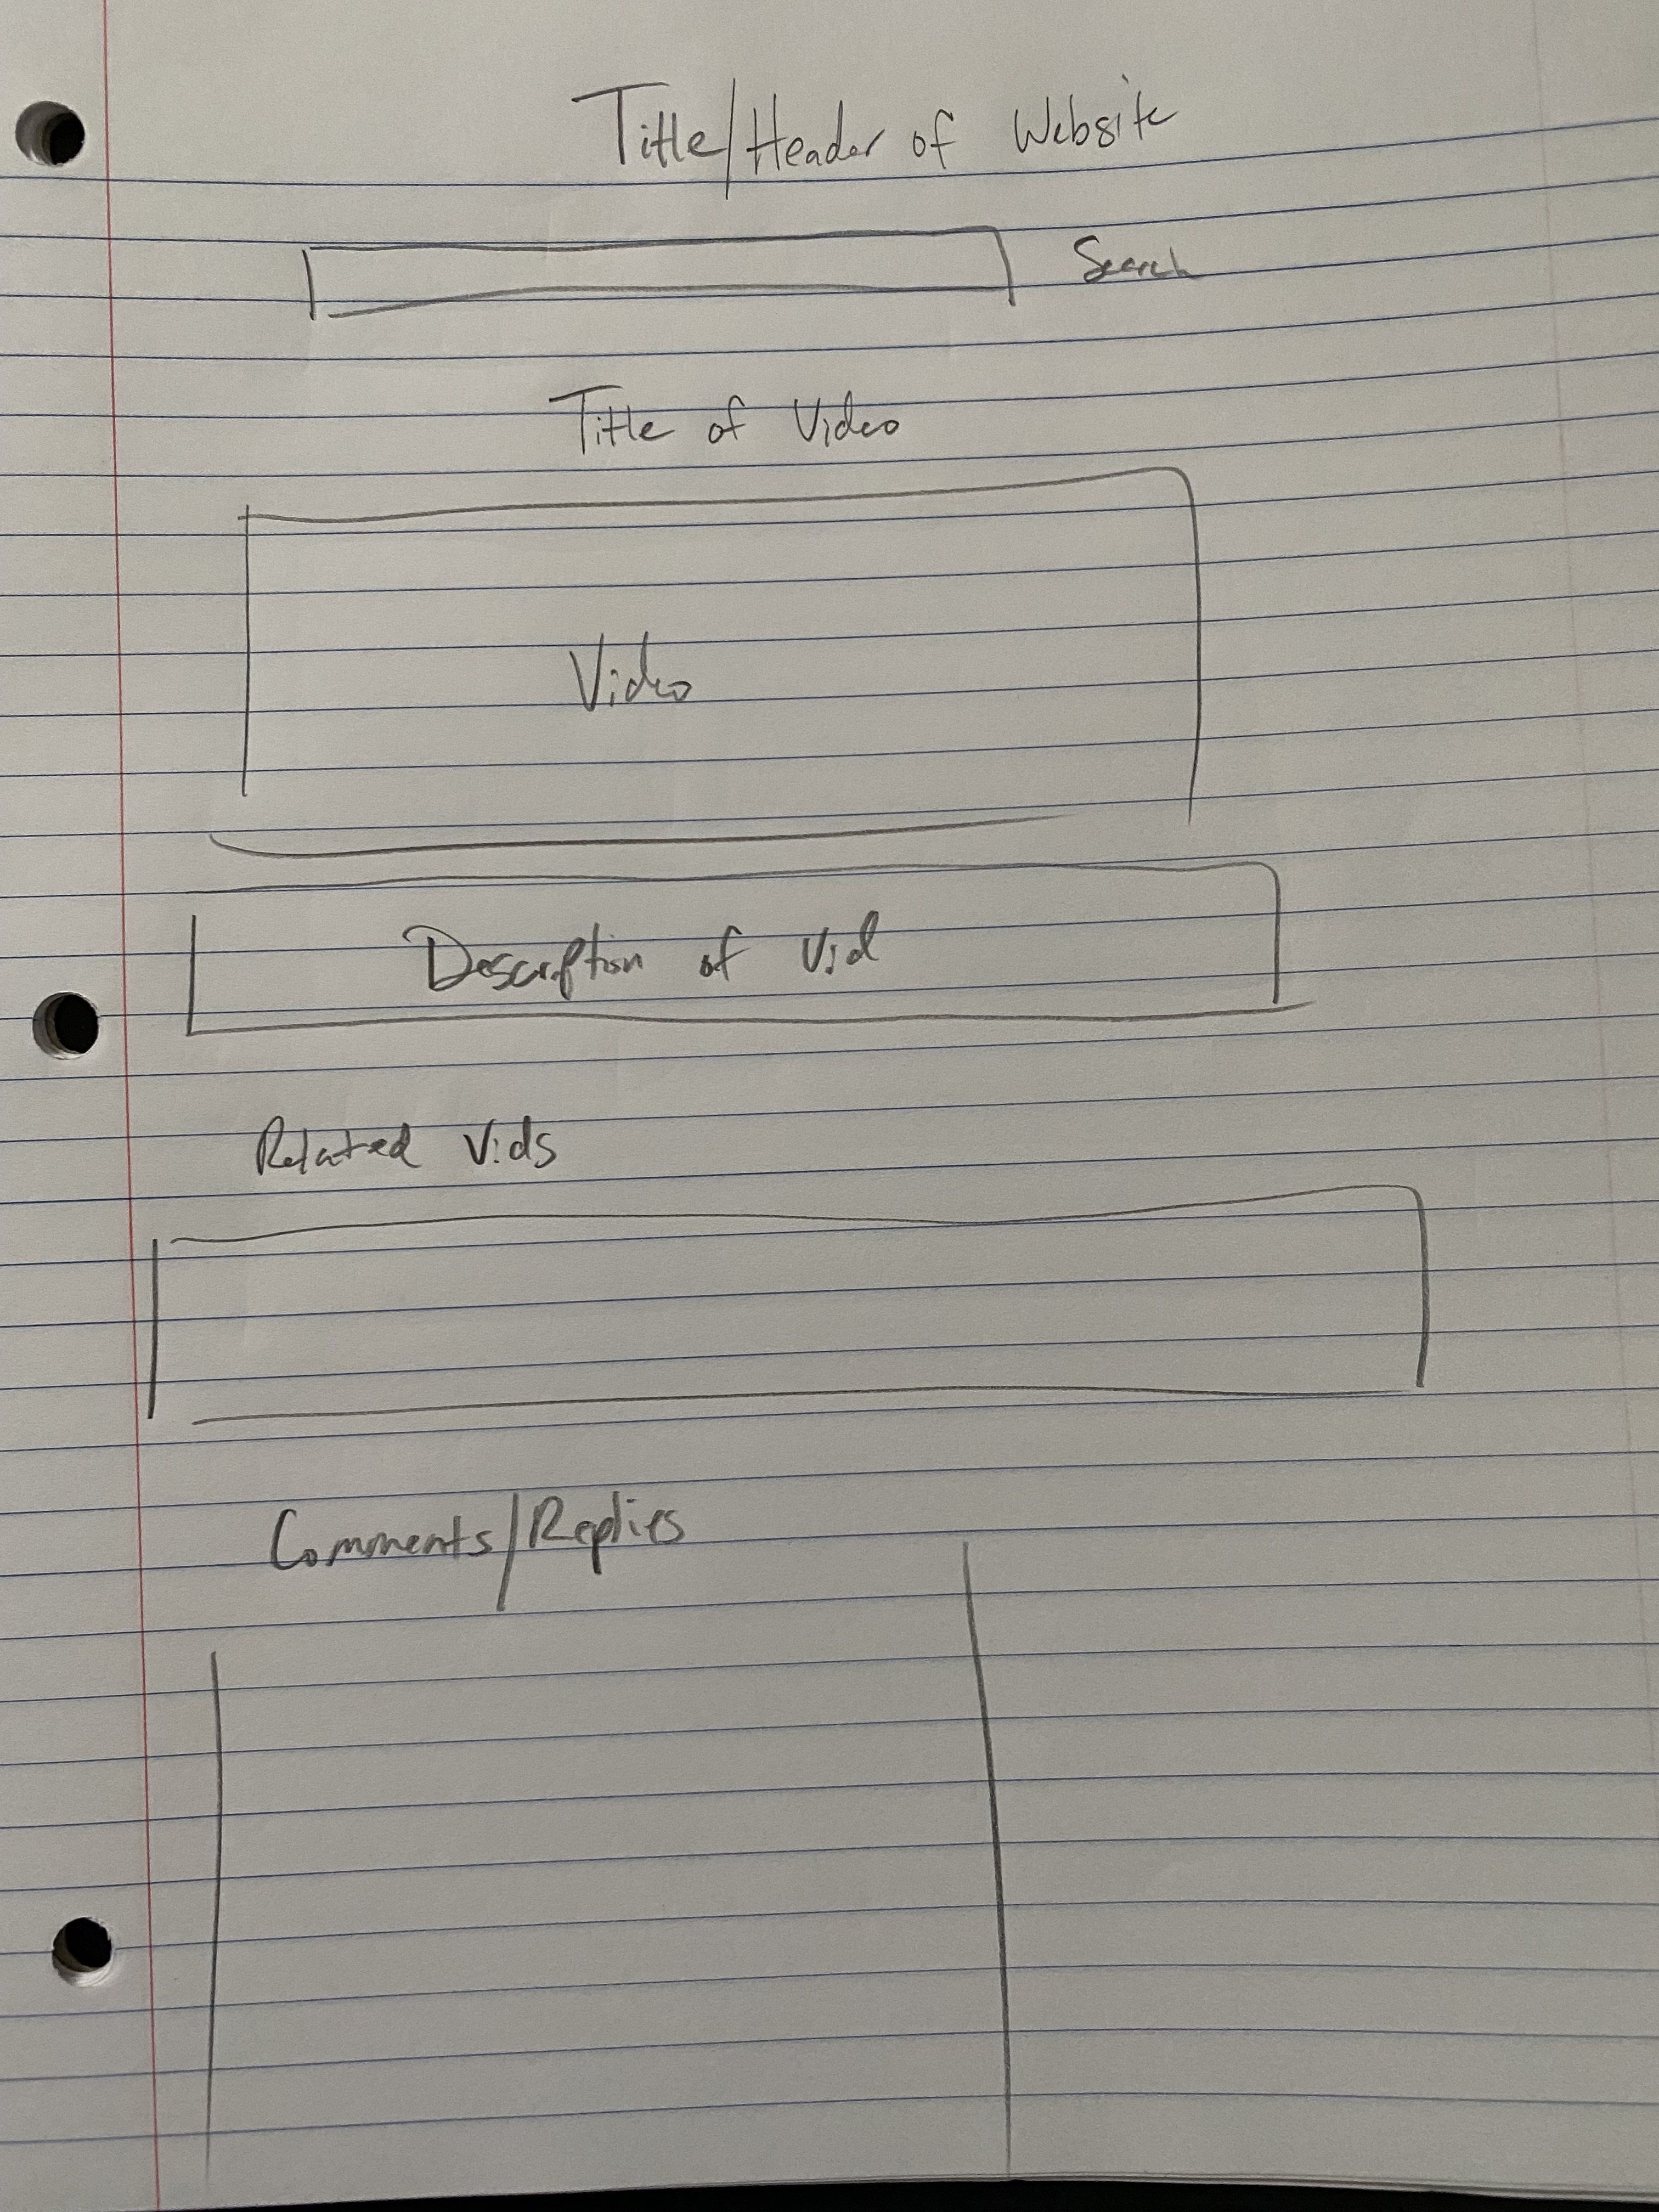 Title/Header of Website
Search
Title of Video
Video
Description of Vid
Related Vids
Comments/Replies